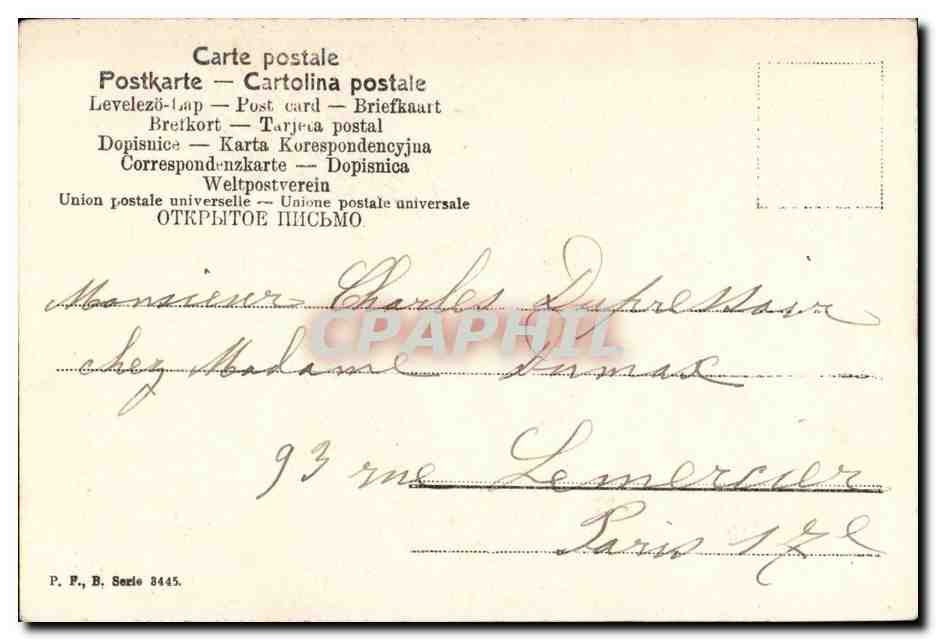 Carte postale
Postkarte — Cartolina postale
Levelező-Lap — Post card — Briefkaart
Brefkort — Tarjeta postal
Dopisnice — Karta Korespondencyjna
Correspondenzkarte — Dopisnica
Weltpostverein
Union postale universelle — Unione postale universale
ОТКРЫТОЕ ПИСЬМО
Monsieur Charles
CPAPHIL
chez Madame Dumax
93 rue Lemercier
Paris 17e
P. F., B. Serie 3445.